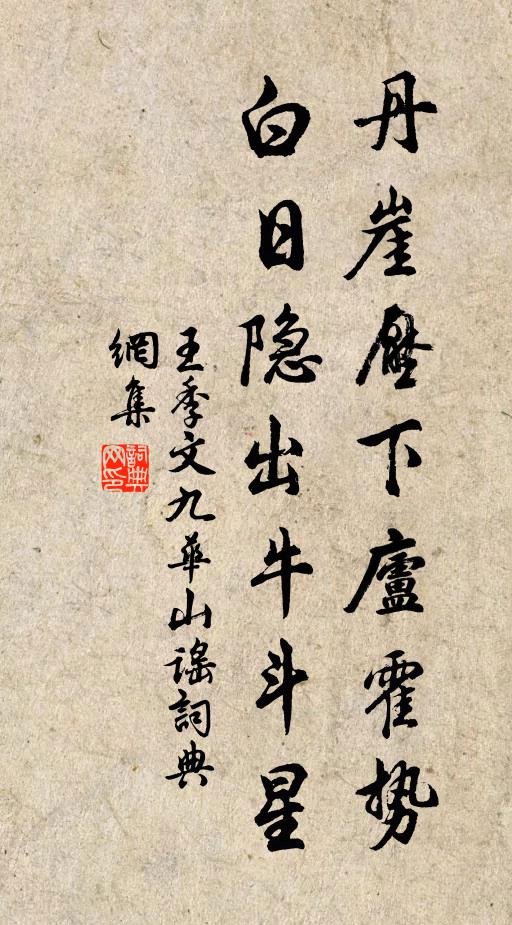 丹崖壓下廬霍勢
白日隐出牛斗星
王季文九華山谣詞典
網集
詞典
网印